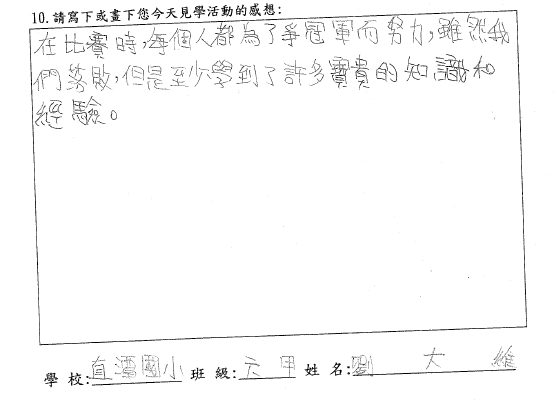 10.請寫下或畫下您今天見學活動的感想:
在比賽時,每個人都為了爭冠軍而努力,雖然我
們落敗,但是至少學到了許多寶貴的知識和
經驗。
學 校:直潭國小 班 級:六 甲 姓 名:劉 大 維